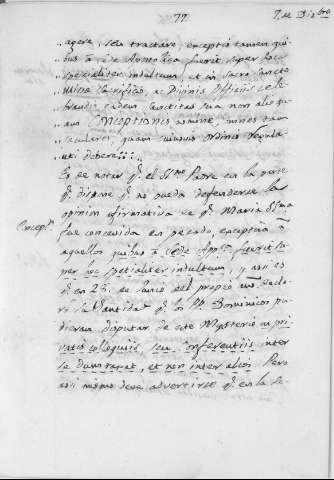 77
7. de Dizbre
agere, seu tractare, exceptis tamen qui
bus a Sede Apostolica fuerit super hoc
specialiter indultum, et in Sacro Sancto
Missa Sacrificio, ac Divinis Officiis cele
brandis eadem Sanctitas sua non alio qu
am Conceptionis nomine, omnes tam
seculares, quam cuiusvis ordinis regula
res uti debere
Es de notar q.e el SS.mo Padre en la parte
q.e dispone q.e no pueda defenderse la
opinion afirmativa de q.e Maria SS.ma
fue concevida en pecado, exceptua â
Excep.n
aquellos quibus a Sede App.ca fuerit su
per hoc specialiter indultum, y asi es
q.e en 28 de Junio del propio año decla
rò su Santidad q.e los PP. Dominicos pu
dieran disputar de este Mysterio in pri
vatis colloquiis, seu conferentiis inter
se dumtaxat, et non inter alios. Pero
asi mismo deve advertirse q.e en la Se